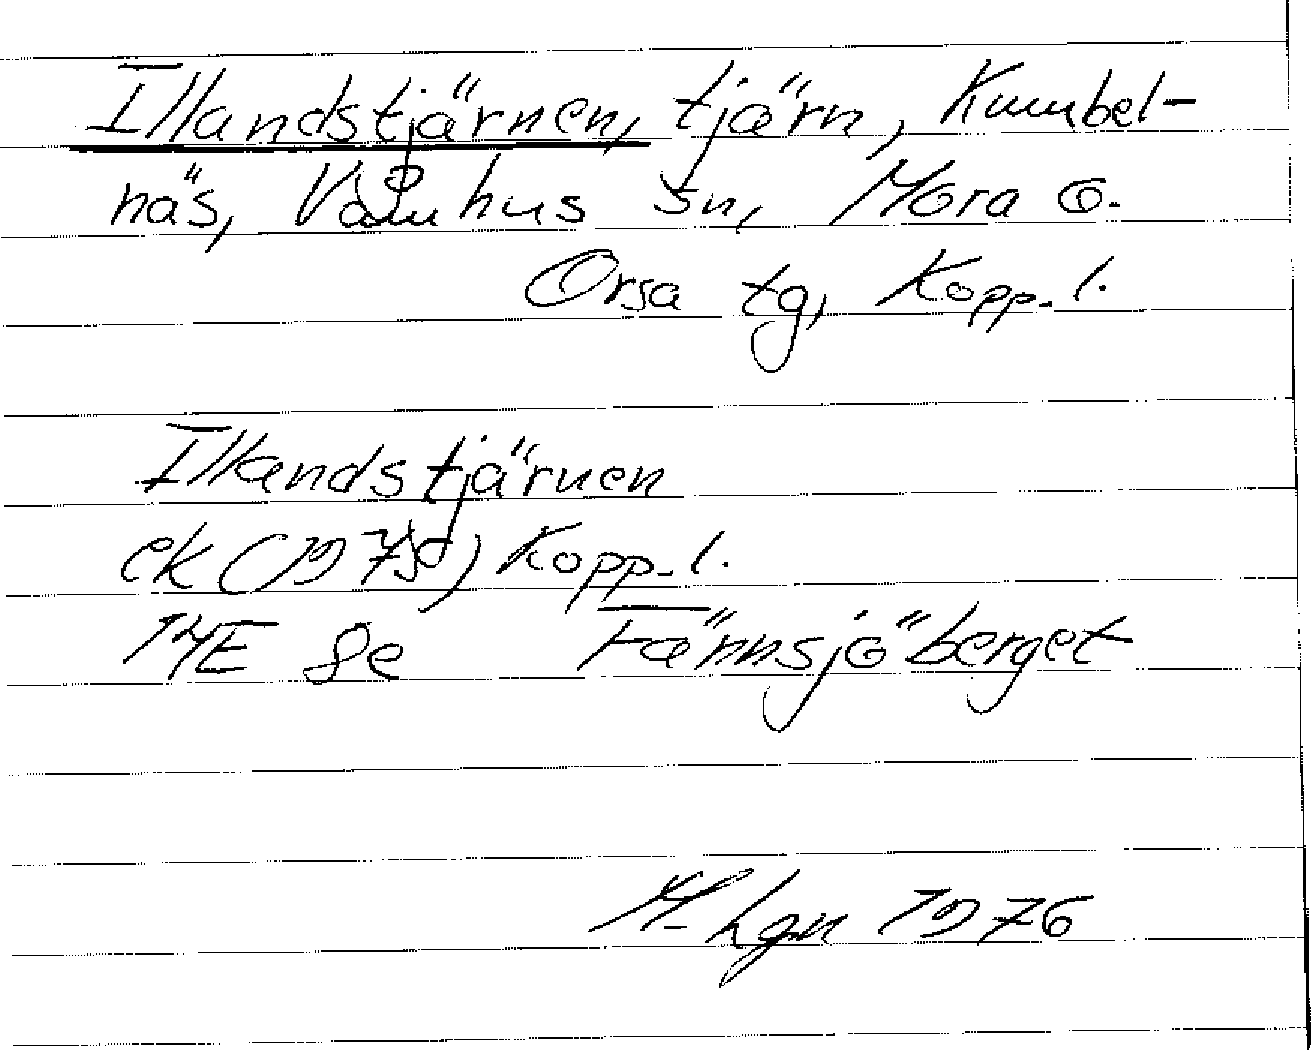 Illandstjärnen, tjärn, Kumbel-
näs, Våmhus sn, Mora o.
Orsa tg, Kopp. l.
Illandstjärnen
ek (1975) Kopp. l.
14E 8e Fännsjöberget
M. Lgn 1976